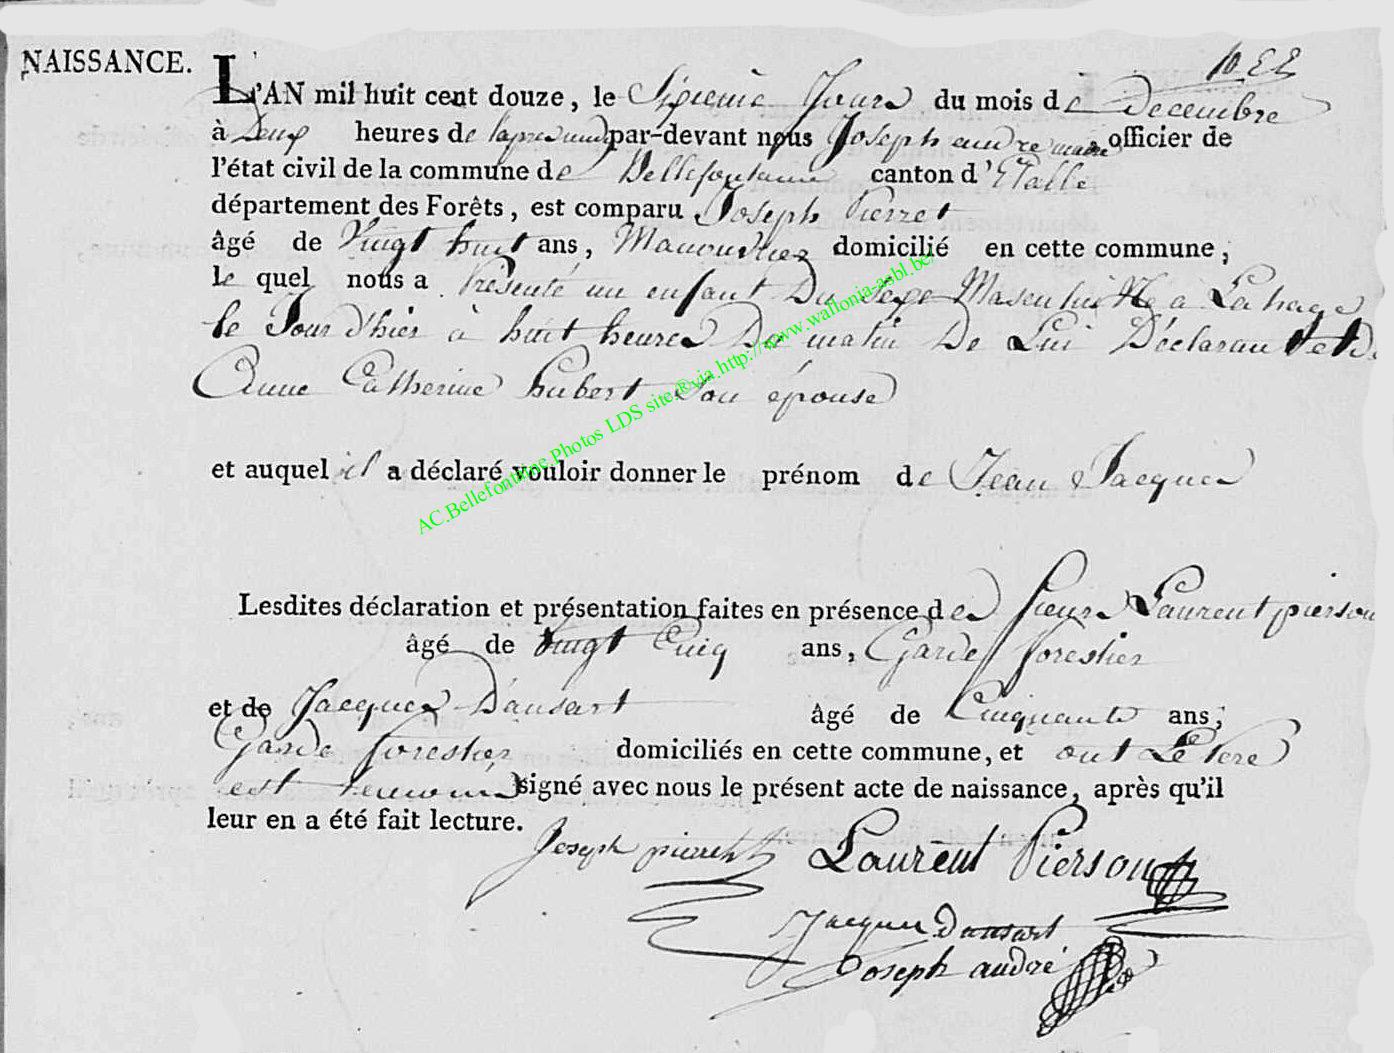 NAISSANCE.
L'AN mil huit cent douze, le Sixieme Jours du mois de Decembre
à Deux heures de l'apres midi par-devant nous Joseph andre maire officier de
l'état civil de la commune de Bellefontaine canton d'Etalle
département des Forêts, est comparu Joseph Pierret
âgé de Vingt huit ans, Manouvrier domicilié en cette commune;
le quel nous a Présenté un enfant Du Sexe Masculin Né a Lahage
le Jour d'hier à huit heures Du matin De Lui Déclarant et De
Anne Catherine hubert Son épouse
et auquel il a déclaré vouloir donner le prénom de Jean Jacques
Lesdites déclaration et présentation faites en présence des Sieurs Laurent pierson
âgé de Vingt Cinq ans, Garde forestier
et de Jacques Dausart âgé de Cinquante ans;
Garde forestier domiciliés en cette commune, et ont Le Pere
est temoins signé avec nous le présent acte de naissance, après qu'il
leur en a été fait lecture.
Joseph pierret Laurent Pierson
Jacques Dausart
Joseph andré
AC.Bellefontaine.Photos LDS site.®via.http://www.wallonia-asbl.be/